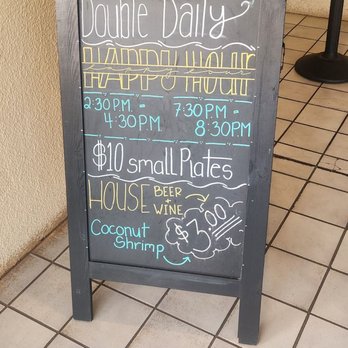 Double Daily
HAPPY HOUR
happy hour
2:30 P.M. - 7:30 P.M. -
4:30 P.M. 8:30PM
$10 small Plates
HOUSE BEER + WINE
$7.00
Coconut
Shrimp